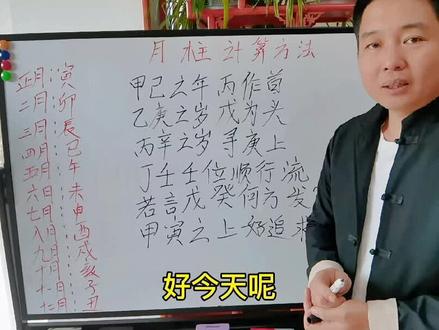 月柱计算方法
正月:寅
二月:卯
三月:辰
四月:巳
五月:午
六月:未
七月:申
八月:酉
九月:戌
十月:亥
十一月:子
十二月:丑
甲己之年丙作首
乙庚之岁戊为头
丙辛之岁寻庚上
丁壬壬位顺行流
若言戊癸何方发
甲寅之上好追
好今天呢